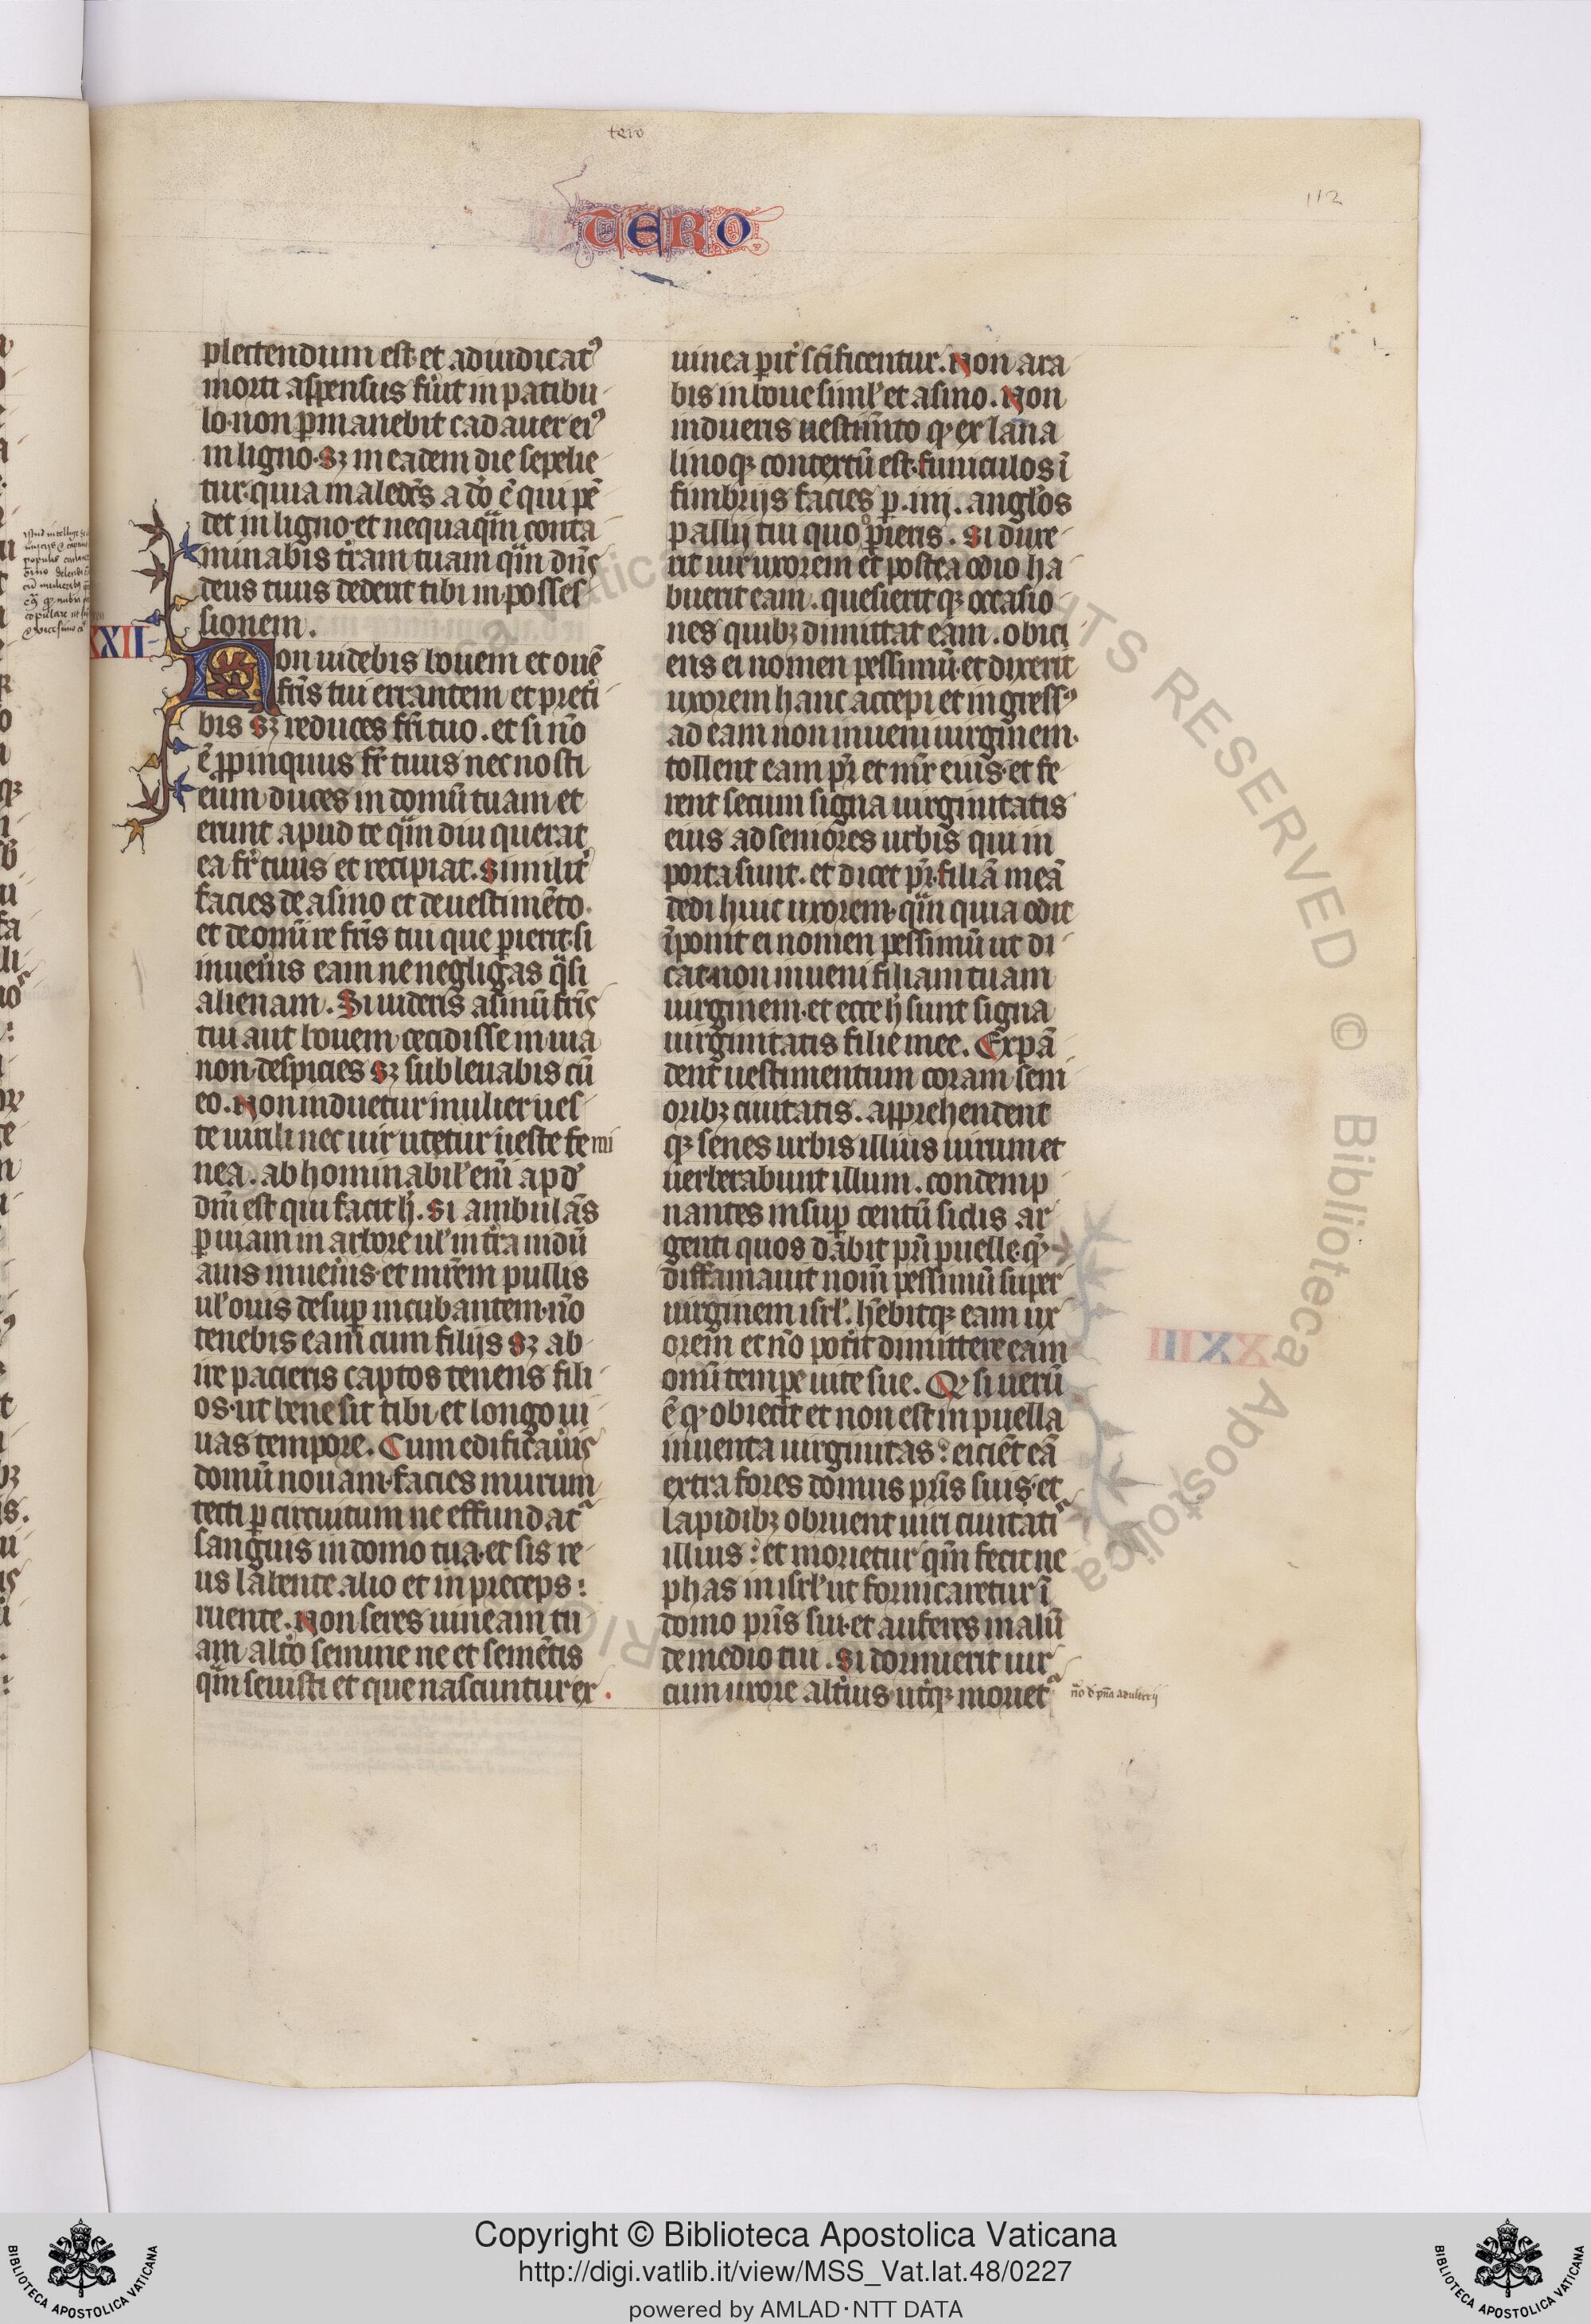 tero
TERO
112
plectendum est. et adiudicatꝰ
morti appensus fuit in patibu
lo. non ꝑmanebit cadauer eiꝰ
in ligno. sꝫ in eadem die sepelie
tur. quia maledc̄s a dō ē qui pē
det in ligno. et nequaqͣm conta
minabis tr̄am tuam qͣm dn̄s
deus tuus dederit tibi in posses
sionem.
XXII
Non uidebis bouem et ouē
fr̄is tui errantem et preti
bis sꝫ reduces fr̄i tuo. et si nō
ē ꝓpinquus fr̄ tuus nec nosti
eum duces in domū tuam et
erunt apud te qͣm diu querat
ea fr̄ tuus et recipiat. Similit͛
facies de asino et de uestimēto.
et de omī re fr̄is tui que ꝑierit. si
inuen͛is eam ne negligas qͣsi
alienam. Si uideris asinū fr̄is
tui aut bouem cecidisse in uia
non despicies sꝫ subleuabis cū
eo. Non induetur mulier ues
te uirili nec uir utetur ueste femi
nea. abhominabil̓ eni̅ apd̓
dn̄m est qui facit h̓. Si ambulās
ꝑ uiam in arbore ul̓ in tr̄a nidū
auis inuen͛is. et mr̄em pullis
ul̓ ouis desuꝑ incubantem. nō
tenebis eam cum filijs sꝫ ab
ire pacieris captos tenens fili
os. ut bene sit tibi et longo ui
uas tempore. Cum edificau͛is
domū nouam. facies murum
tecti ꝑ circuitum ne effundatᷣ
sanguis in domo tua. et sis re
us labente alio et in preceps
ruente. Non seres uineam tu
am alt͛o semine ne et semētis
qͣm seuisti et que nascuntur ex
uinea ꝑit͛ sc̄ificentur. Non ara
bis in boue simul̓ et asino. Non
indueris uestim̄to qͦ ex lana
linoqꝫ contextū est. funiculos ī
fimbrijs facies ꝑ .iiij. angl̓os
pallij tui quo oꝑieris. Si duxe
rit uir uxorem et postea odio ha
buerit eam. quesieritqꝫ occasio
nes quibꝫ dimittat eam. obici
ens ei nomen pessimū. et dixerit
uxorem hanc accepi et ingressꝰ
ad eam non inueni uirginem.
tollent eam pr̄ et mr̄ eius. et fe
rent secum signa uirginitatis
eius ad seniores urbis qui in
porta sunt. et dicet pr̄. filiā meā
dedi huic uxorem. qͣm quia odit
īponit ei nomen pessimū ut di
cat. non inueni filiam tuam
uirginem. et ecce h̓ sunt signa
uirginitatis filie mee. Expā
dent uestimentum coram seni
oribꝫ ciuitatis. apprehendent
qꝫ senes urbis illius uirum et
uerberabunt illum. condemp
nantes insuꝑ centū siclis ar
genti quos dabit pr̄i puelle. qͥ
diffamauit nom̄ pessimū super
uirginem isrl̓. hēbitqꝫ eam ux
orem et nō pot͛it dimittere eam
omī tempe uite sue. Qͦ si uerū
ē qͦ obiecit et non est in puella
inuenta uirginitas: eiciēt eā
extra fores domus pr̄is suis. et
lapidibꝫ obruent uiri ciuitati
illius: et morietur qm̄ fecit ne
phas in isrl̓ ut fornicaretur ī
domo pr̄is sui. et auferes malū
de medio tui. Si dormierit uir
cum uxore alt͛ius. ut͛qꝫ morietᷣ
nō d̓ pn̄a adulterij
Copyright © Biblioteca Apostolica Vaticana
http://digi.vatlib.it/view/MSS_Vat.lat.48/0227
powered by AMLAD·NTT DATA
BIBLIOTECA APOSTOLICA VATICANA
BIBLIOTECA APOSTOLICA VATICANA